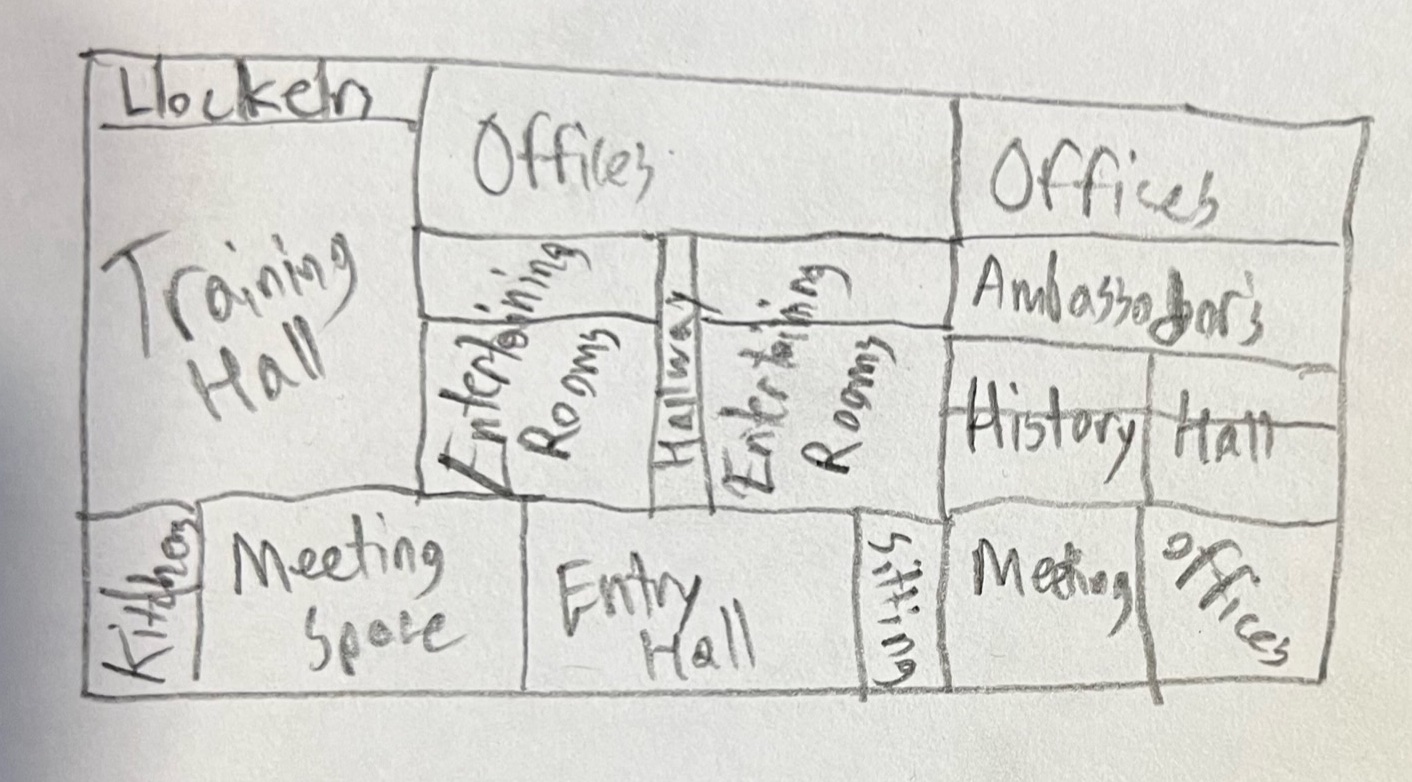 Llockeln
Offices
Offices
Training
Hall
Entertaining
Rooms
Hallway
Entertaining
Rooms
Ambassador's
History Hall
Kitchen
Meeting
Space
Entry
Hall
Sitting
Meeting
Offices